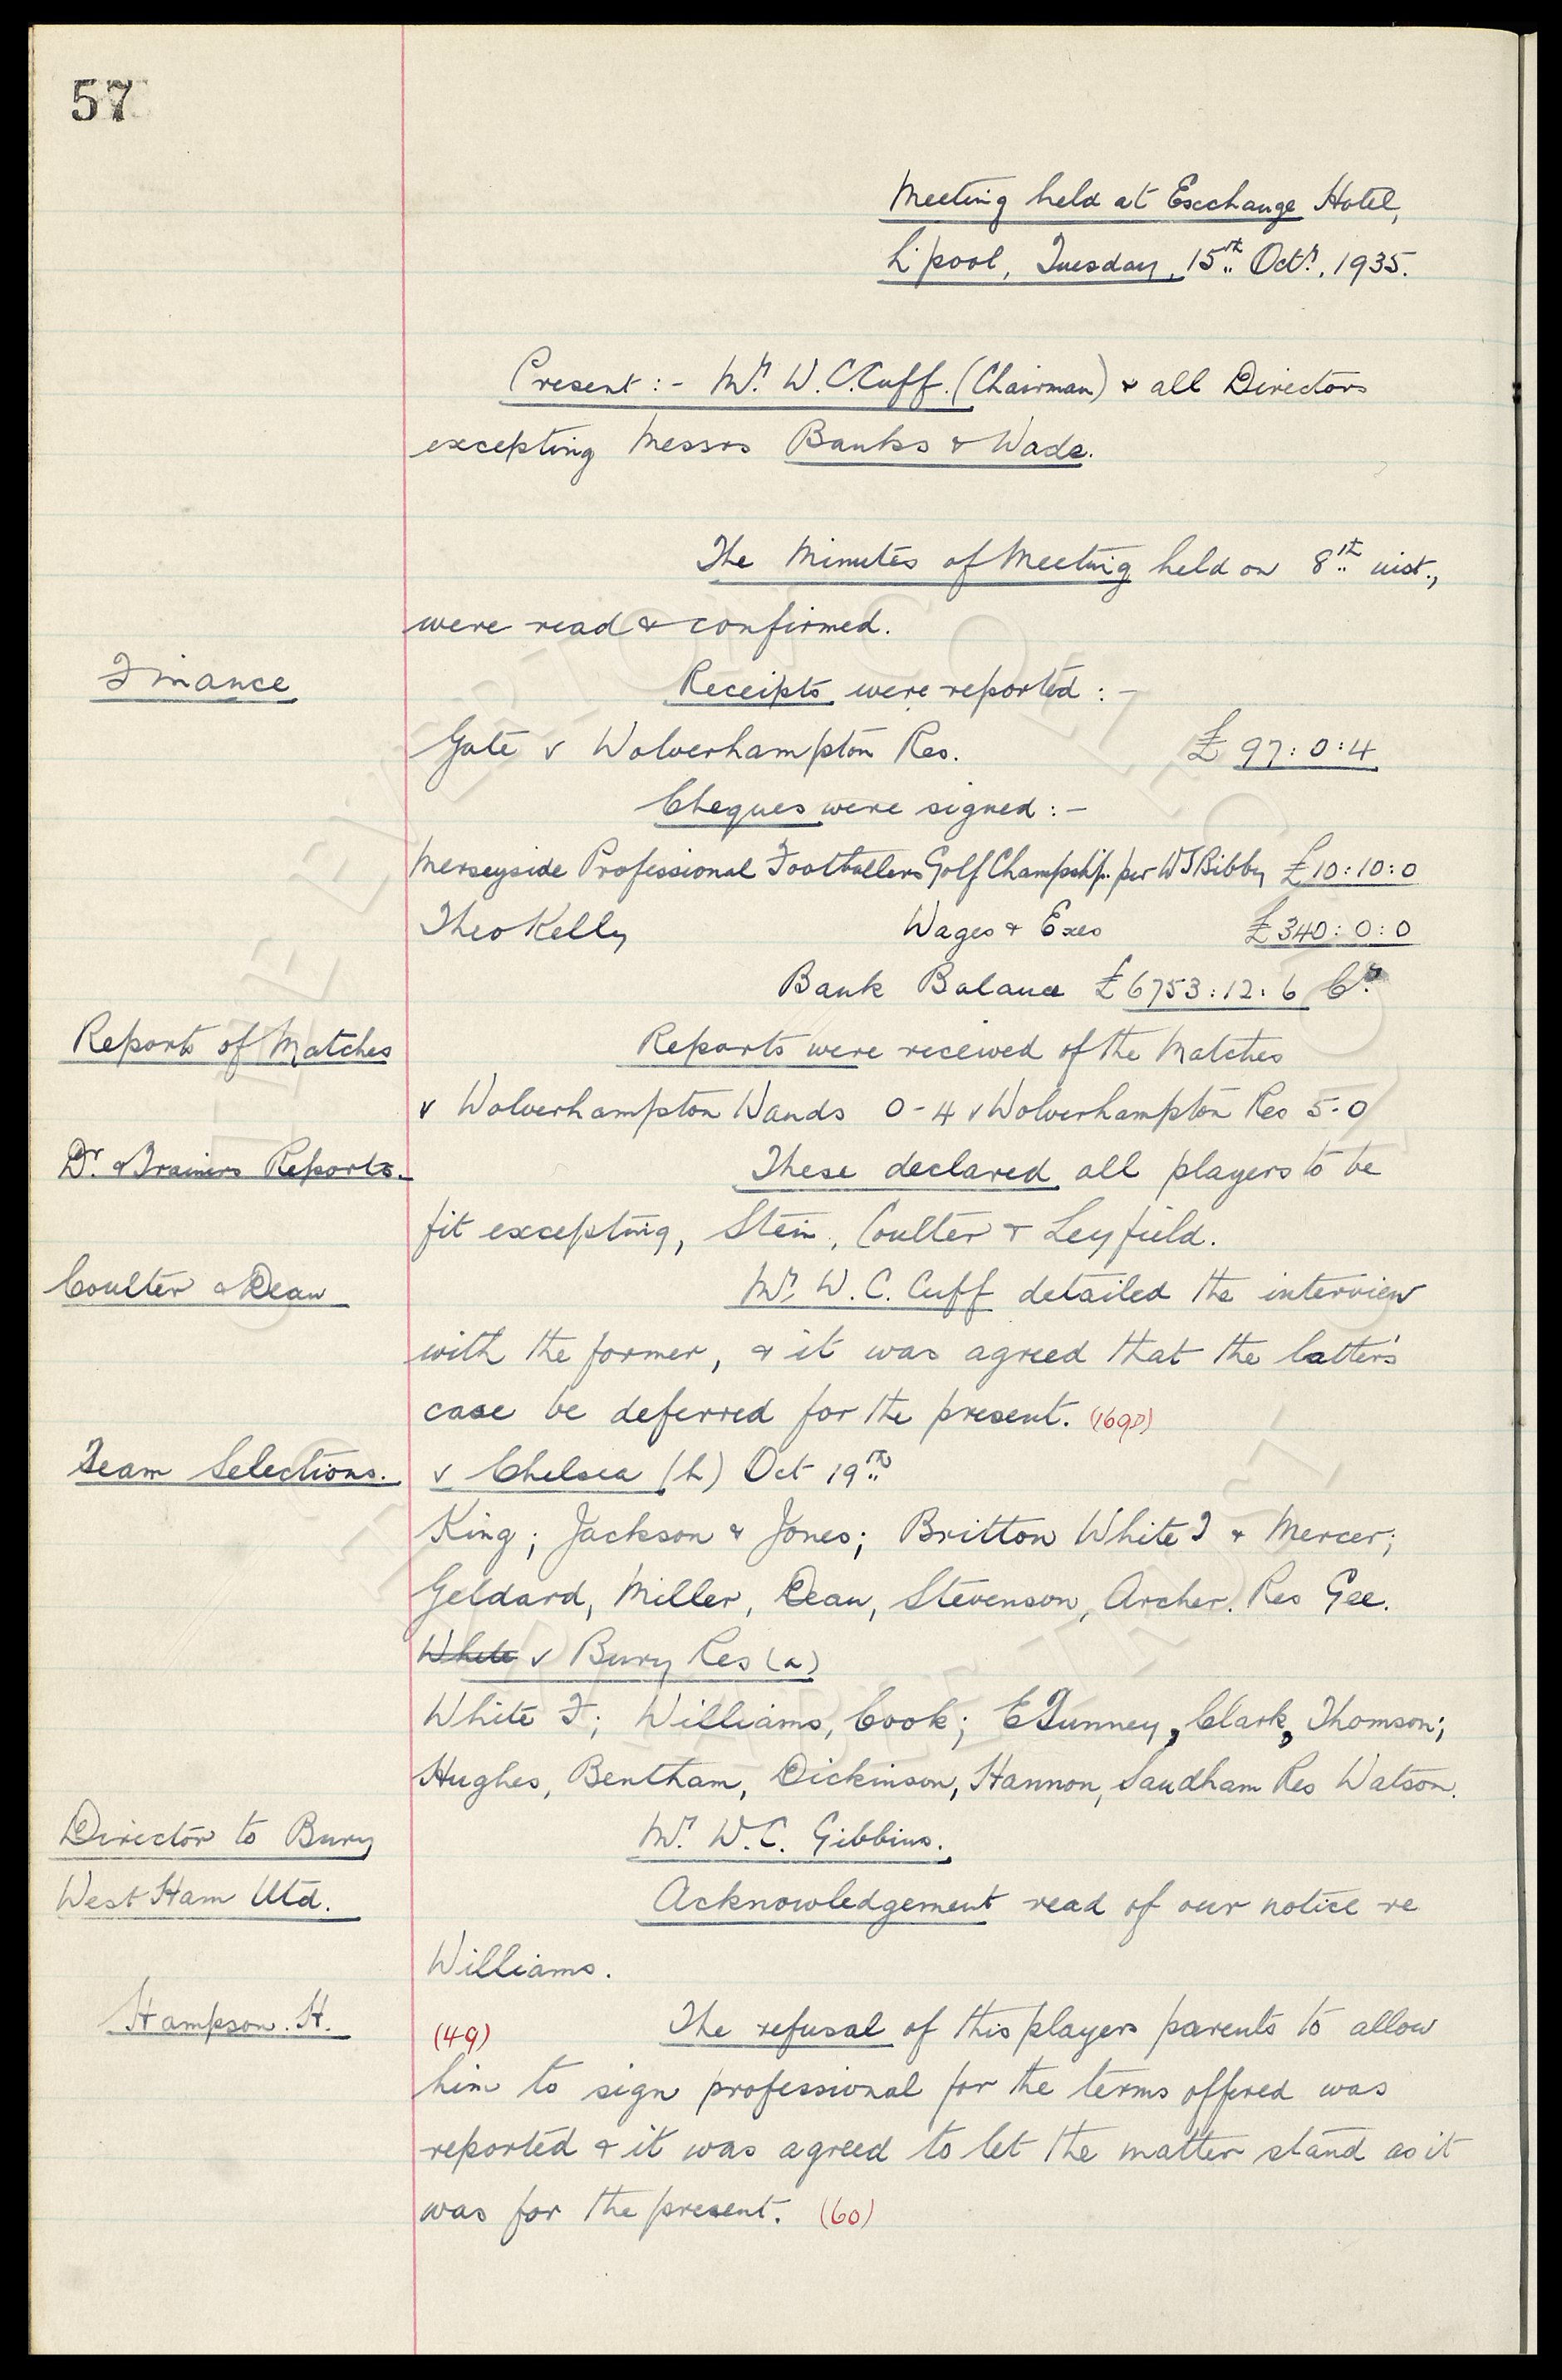 57
Meeting held at Exchange Hotel,
L'pool, Tuesday, 15th Octr., 1935.
Present :- Mr. W.C.Cuff. (Chairman) & all Directors
excepting Messrs Banks & Wade.
The Minutes of Meeting held on 8th inst.,
were read & confirmed.
Finance
Receipts were reported :-
Gate v Wolverhampton Res. £ 97:0:4
Cheques were signed :-
Merseyside Professional Footballers Golf Champshp. per WJBibby £10:10:0
Theo Kelly Wages & Exes £340:0:0
Bank Balance £6753:12:6 Cr.
Reports of Matches Reports were received of the Matches
v Wolverhampton Wands 0-4 v Wolverhampton Res 5-0
Dr. & Trainers Reports. These declared all players to be
fit excepting, Stein, Coulter & Leyfield.
Coulter & Dean Mr. W. C. Cuff detailed the interview
with the former, & it was agreed that the latter's
case be deferred for the present.
Team Selections. v Chelsea (h) Oct 19th
King; Jackson & Jones; Britton White T & Mercer;
Geldard, Miller, Dean, Stevenson, Archer. Res Gee.
White v Bury Res (a)
White F; Williams, Cook; E Tunney, Clark, Thomson;
Hughes, Bentham, Dickinson, Hannon, Sandham Res Watson.
Director to Bury Mr. W.C. Gibbins.
West Ham Utd. Acknowledgement read of our notice re
Williams.
Hampson. H. (49) The refusal of this players parents to allow
him to sign professional for the terms offered was
reported & it was agreed to let the matter stand as it
was for the present. (60)